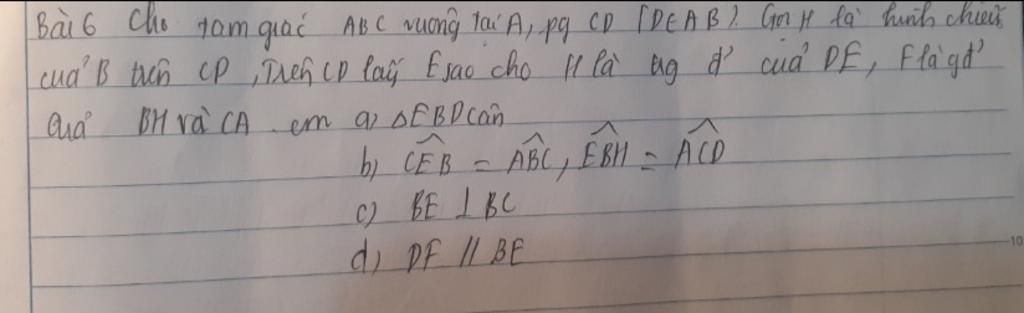 Bài 6 Cho tam giác ABC vuông tại A, pg CD (D∈AB). Gọi H là hình chiếu
của B trên CD, Trên CD lấy E sao cho H là trg đ' của DE, F là gđ'
của BH và CA. cm a) ΔEBD cân
b) \widehat{CEB} = \widehat{ABC}, \widehat{EBH} = \widehat{ACD}
c) BE ⊥ BC
d) DF // BE
10